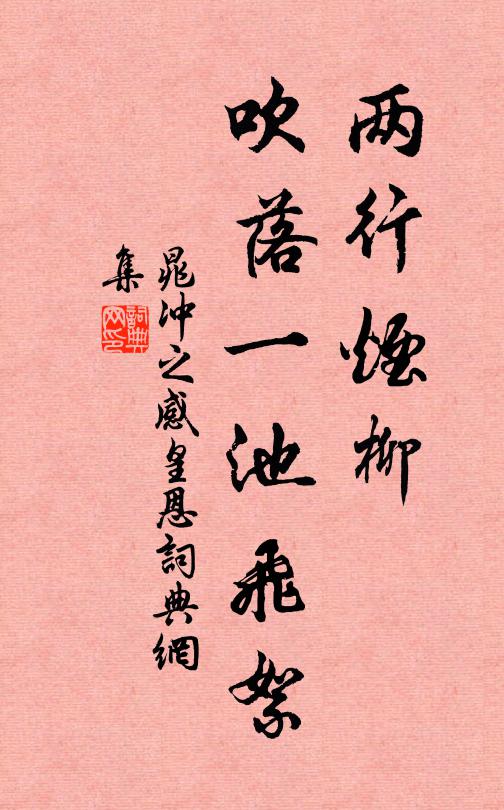 两行煙柳
吹落一池飛絮
晁冲之感皇恩詞典網
集
詞典
网印